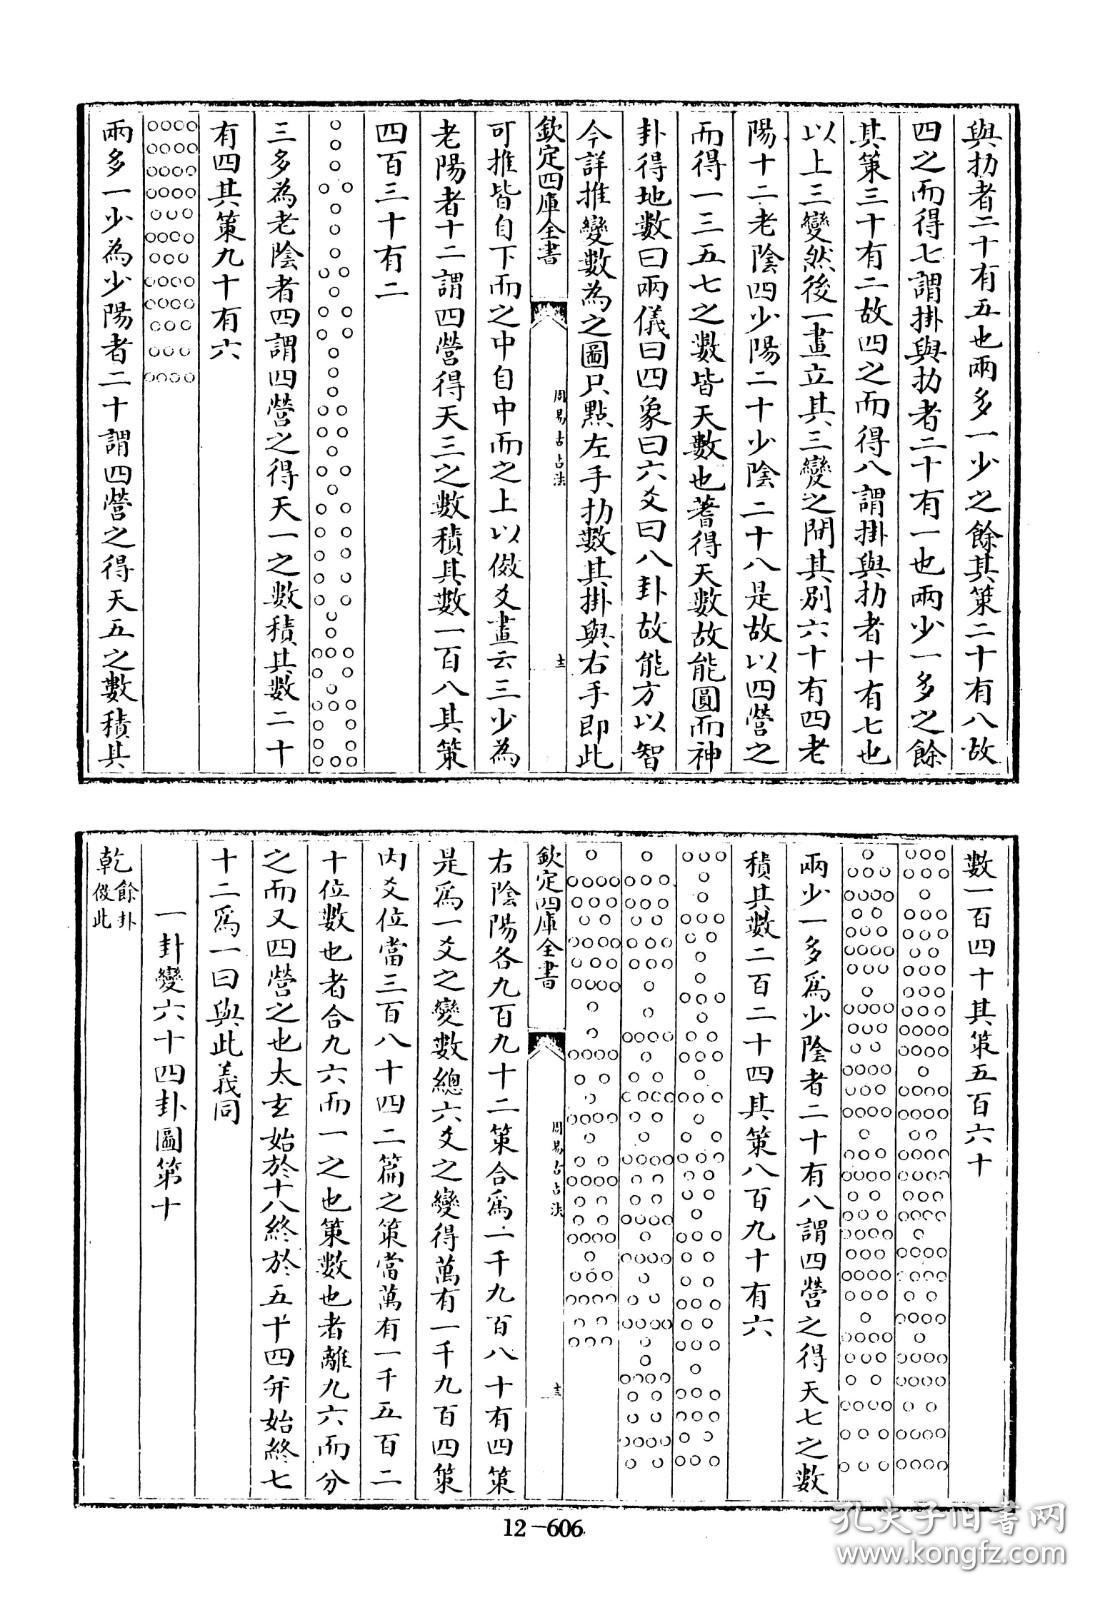 與扐者二十有五也兩多一少之餘其策二十有八故
四之而得七謂掛與扐者二十有一也兩少一多之餘
其策三十有二故四之而得八謂掛與扐者十有七也
以上三變然後一畫立其三變之間其别六十有四老
陽十二老陰四少陽二十少陰二十八是故以四營之
而得一三五七之數皆天數也蓍得天數故能圓而神
卦得地數曰兩儀曰四象曰六爻曰八卦故能方以智
今詳推變數為之圖只點左手扐數其掛與右手即此
欽定四庫全書
周易古占法
十二
可推皆自下而之中自中而之上以俲爻畫云三少為
老陽者十二謂四營得天三之數積其數一百八其策
四百三十有二
三多為老陰者四謂四營之得天一之數積其數二十
有四其策九十有六
兩多一少為少陽者二十謂四營之得天五之數積其
數一百四十其策五百六十
兩少一多為少陰者二十有八謂四營之得天七之數
積其數二百二十四其策八百九十有六
欽定四庫全書
周易古占法
十三
右陰陽各九百九十二策合為一千九百八十有四策
是為一爻之變數總六爻之變得萬有一千九百四策
内爻位當三百八十四二篇之策當萬有一千五百二
十位數也者合九六而一之也策數也者離九六而分
之而又四營之也太玄始於十八終於五十四并始終七
十二為一日與此義同
一卦變六十四卦圖第十
乾餘卦倣此
12-606
孔夫子旧书网
www.kongfz.com